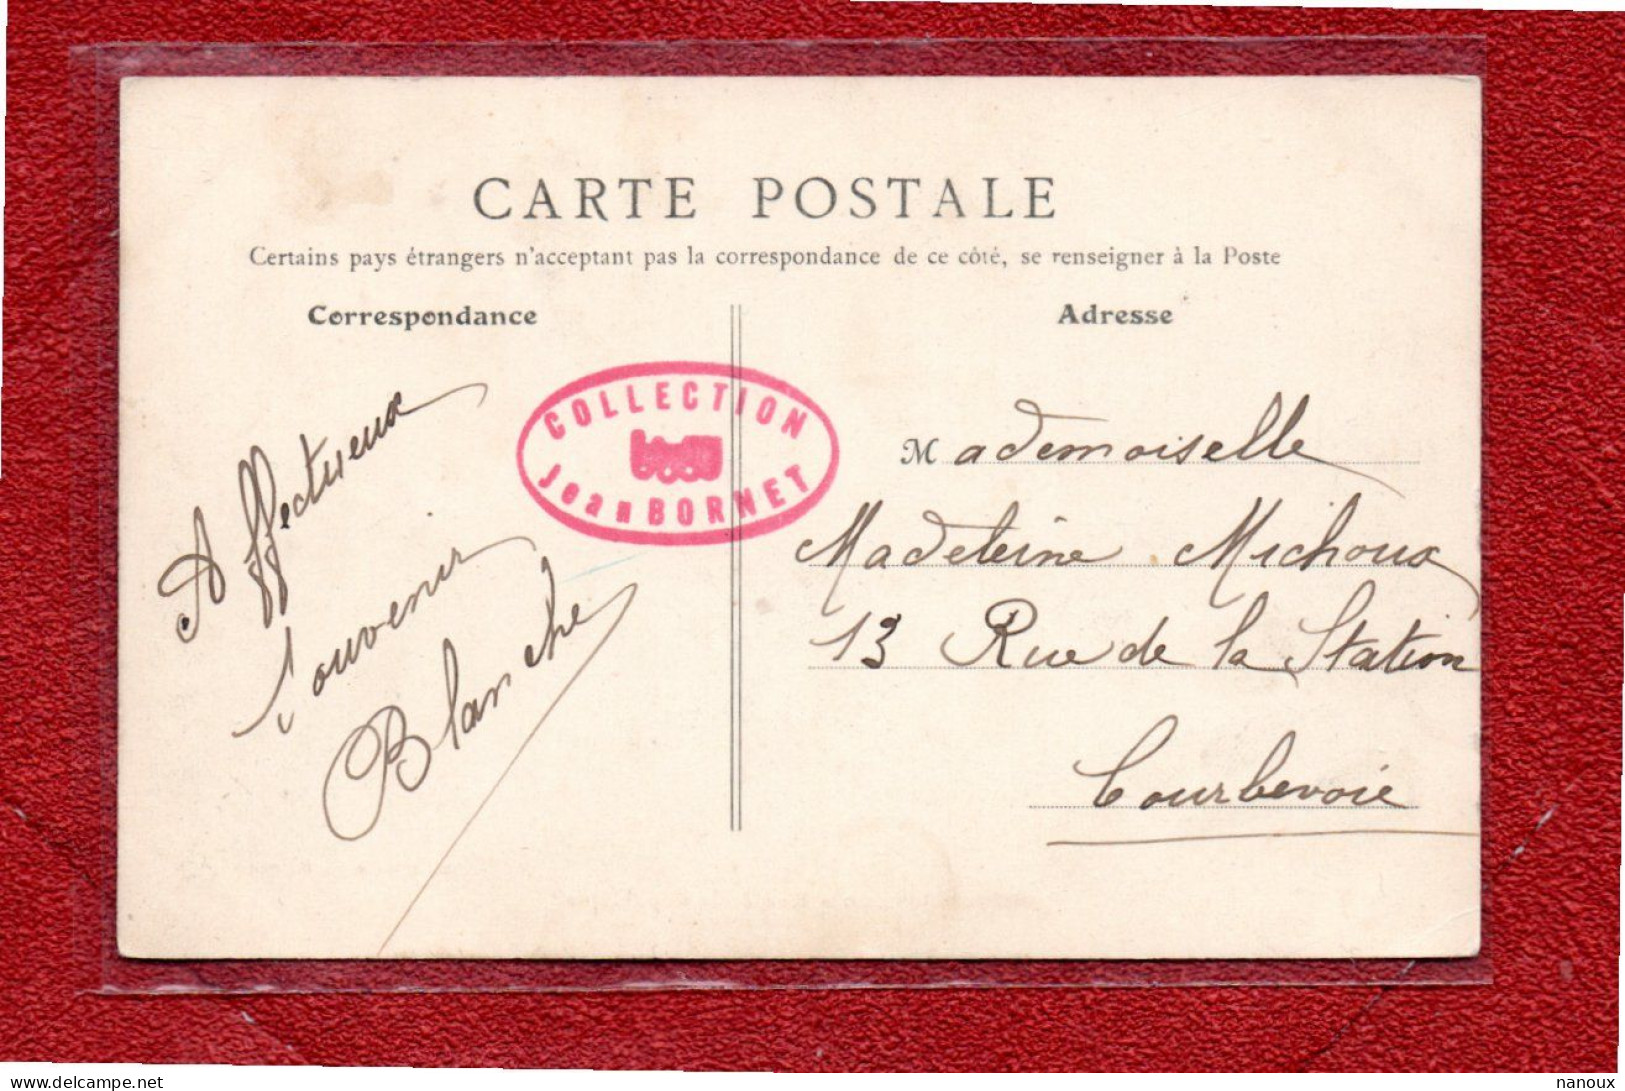 CARTE POSTALE
Certains pays étrangers n'acceptant pas la correspondance de ce côté, se renseigner à la Poste
Correspondance
Adresse
Affectueux
souvenir
Blanche
COLLECTION
Jean BORNET
Mademoiselle
Madeleine Michoux
13 Rue de la Station
Courbevoie
www.delcampe.net
nanoux